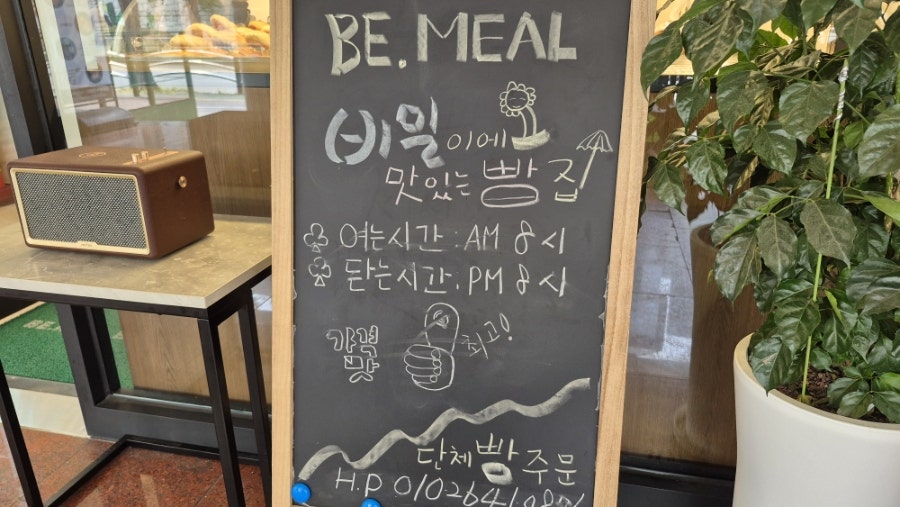 BE.MEAL
비밀이에
맛있는 빵집
여는시간 : AM 8시
닫는시간 : PM 8시
가격
맛
최고!
단체빵주문
H.P